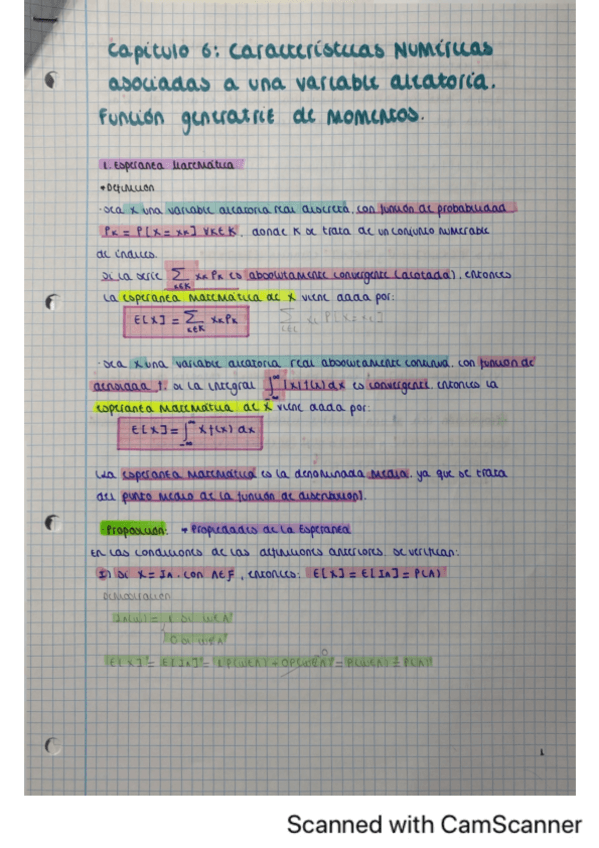 Capítulo 6: Características Numéricas
asociadas a una variable aleatoria.
Función generatriz de momentos.
1. Esperanza Matemática
• Definición
- Sea X una variable aleatoria real discreta, con función de probabilidad
Pₖ = P[X = xₖ] ∀k∈K, donde K se trata de un conjunto numerable
de índices.
Si la serie Σ_{k∈K} xₖPₖ es absolutamente convergente (acotada), entonces
la esperanza matemática de X viene dada por:
E[X] = Σ_{k∈K} xₖPₖ
- Sea X una variable aleatoria real absolutamente continua, con función de
densidad f. Si la integral ∫_{-∞}^{∞} |x|f(x)dx es convergente, entonces la
esperanza matemática de X viene dada por:
E[X] = ∫_{-∞}^{∞} x f(x) dx
La esperanza matemática es la denominada media, ya que se trata
del punto medio de la función de distribución).
- Proposición: • Propiedades de la Esperanza
En las condiciones de las definiciones anteriores se verifican:
1) Si X = I_A, con A∈F, entonces: E[X] = E[I_A] = P(A)
Demostración
0 si w∉A
E[X] = E[I_A] = 1·P(w∈A) + 0P(w∉A) = P(w∈A) = P(A)
1
Scanned with CamScanner